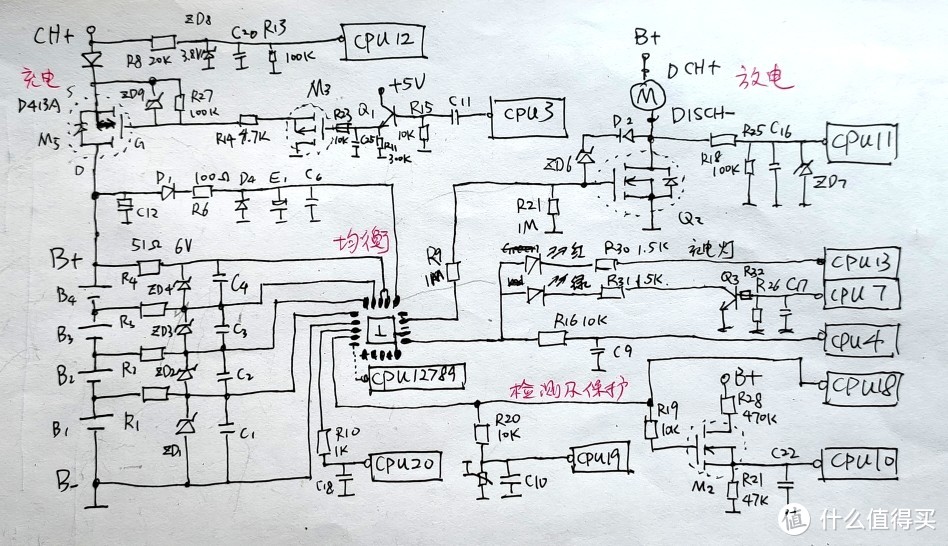 CH+
R8 20K
ZD8
3.8V
C20
R13
100K
CPU12
充电
D413A
M5
S
G
D
ZD9
R27
100K
R14 4.7K
M3
R23
10K
C25
Q1
R11
300K
+5V
R15
10K
C11
CPU3
B+
M
DCH+
放电
DISCH-
D2
ZD6
Q2
R21
1M
R25
R18
100K
C16
ZD7
CPU11
C12
D1
100Ω
R6
D4
E1
C6
均衡
R9
1M
B+
51Ω
6V
R4
ZD4
C4
B4
R3
ZD3
C3
B3
R2
ZD2
C2
B2
R1
ZD1
C1
B1
B-
CPU12789
双红
R30 1.5K
充电灯
CPU13
双绿
R31 1.5K
Q3
R32
R26
C17
CPU7
R16 10K
C9
CPU4
检测及保护
CPU18
R10
1K
C18
CPU20
R20
10K
C10
CPU19
R19
10K
B+
R28
470K
M2
R21
47K
C22
CPU10
值 什么值得买